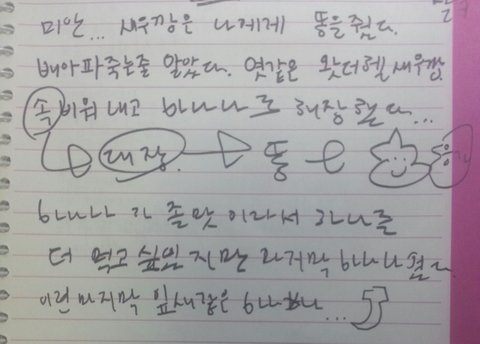 미안... 새우깡은 나에게 똥을 줬다.
배아파죽는줄 알았다. 엿같은 왓더헬새우깡
속 비워내고 바나나로 해장했다...
대장 똥 응가
바나나가 졸맛이라서 하나를
더 먹고 싶었지만 마지막 바나나였다.
이런 마지막 잎새같은 바나나...